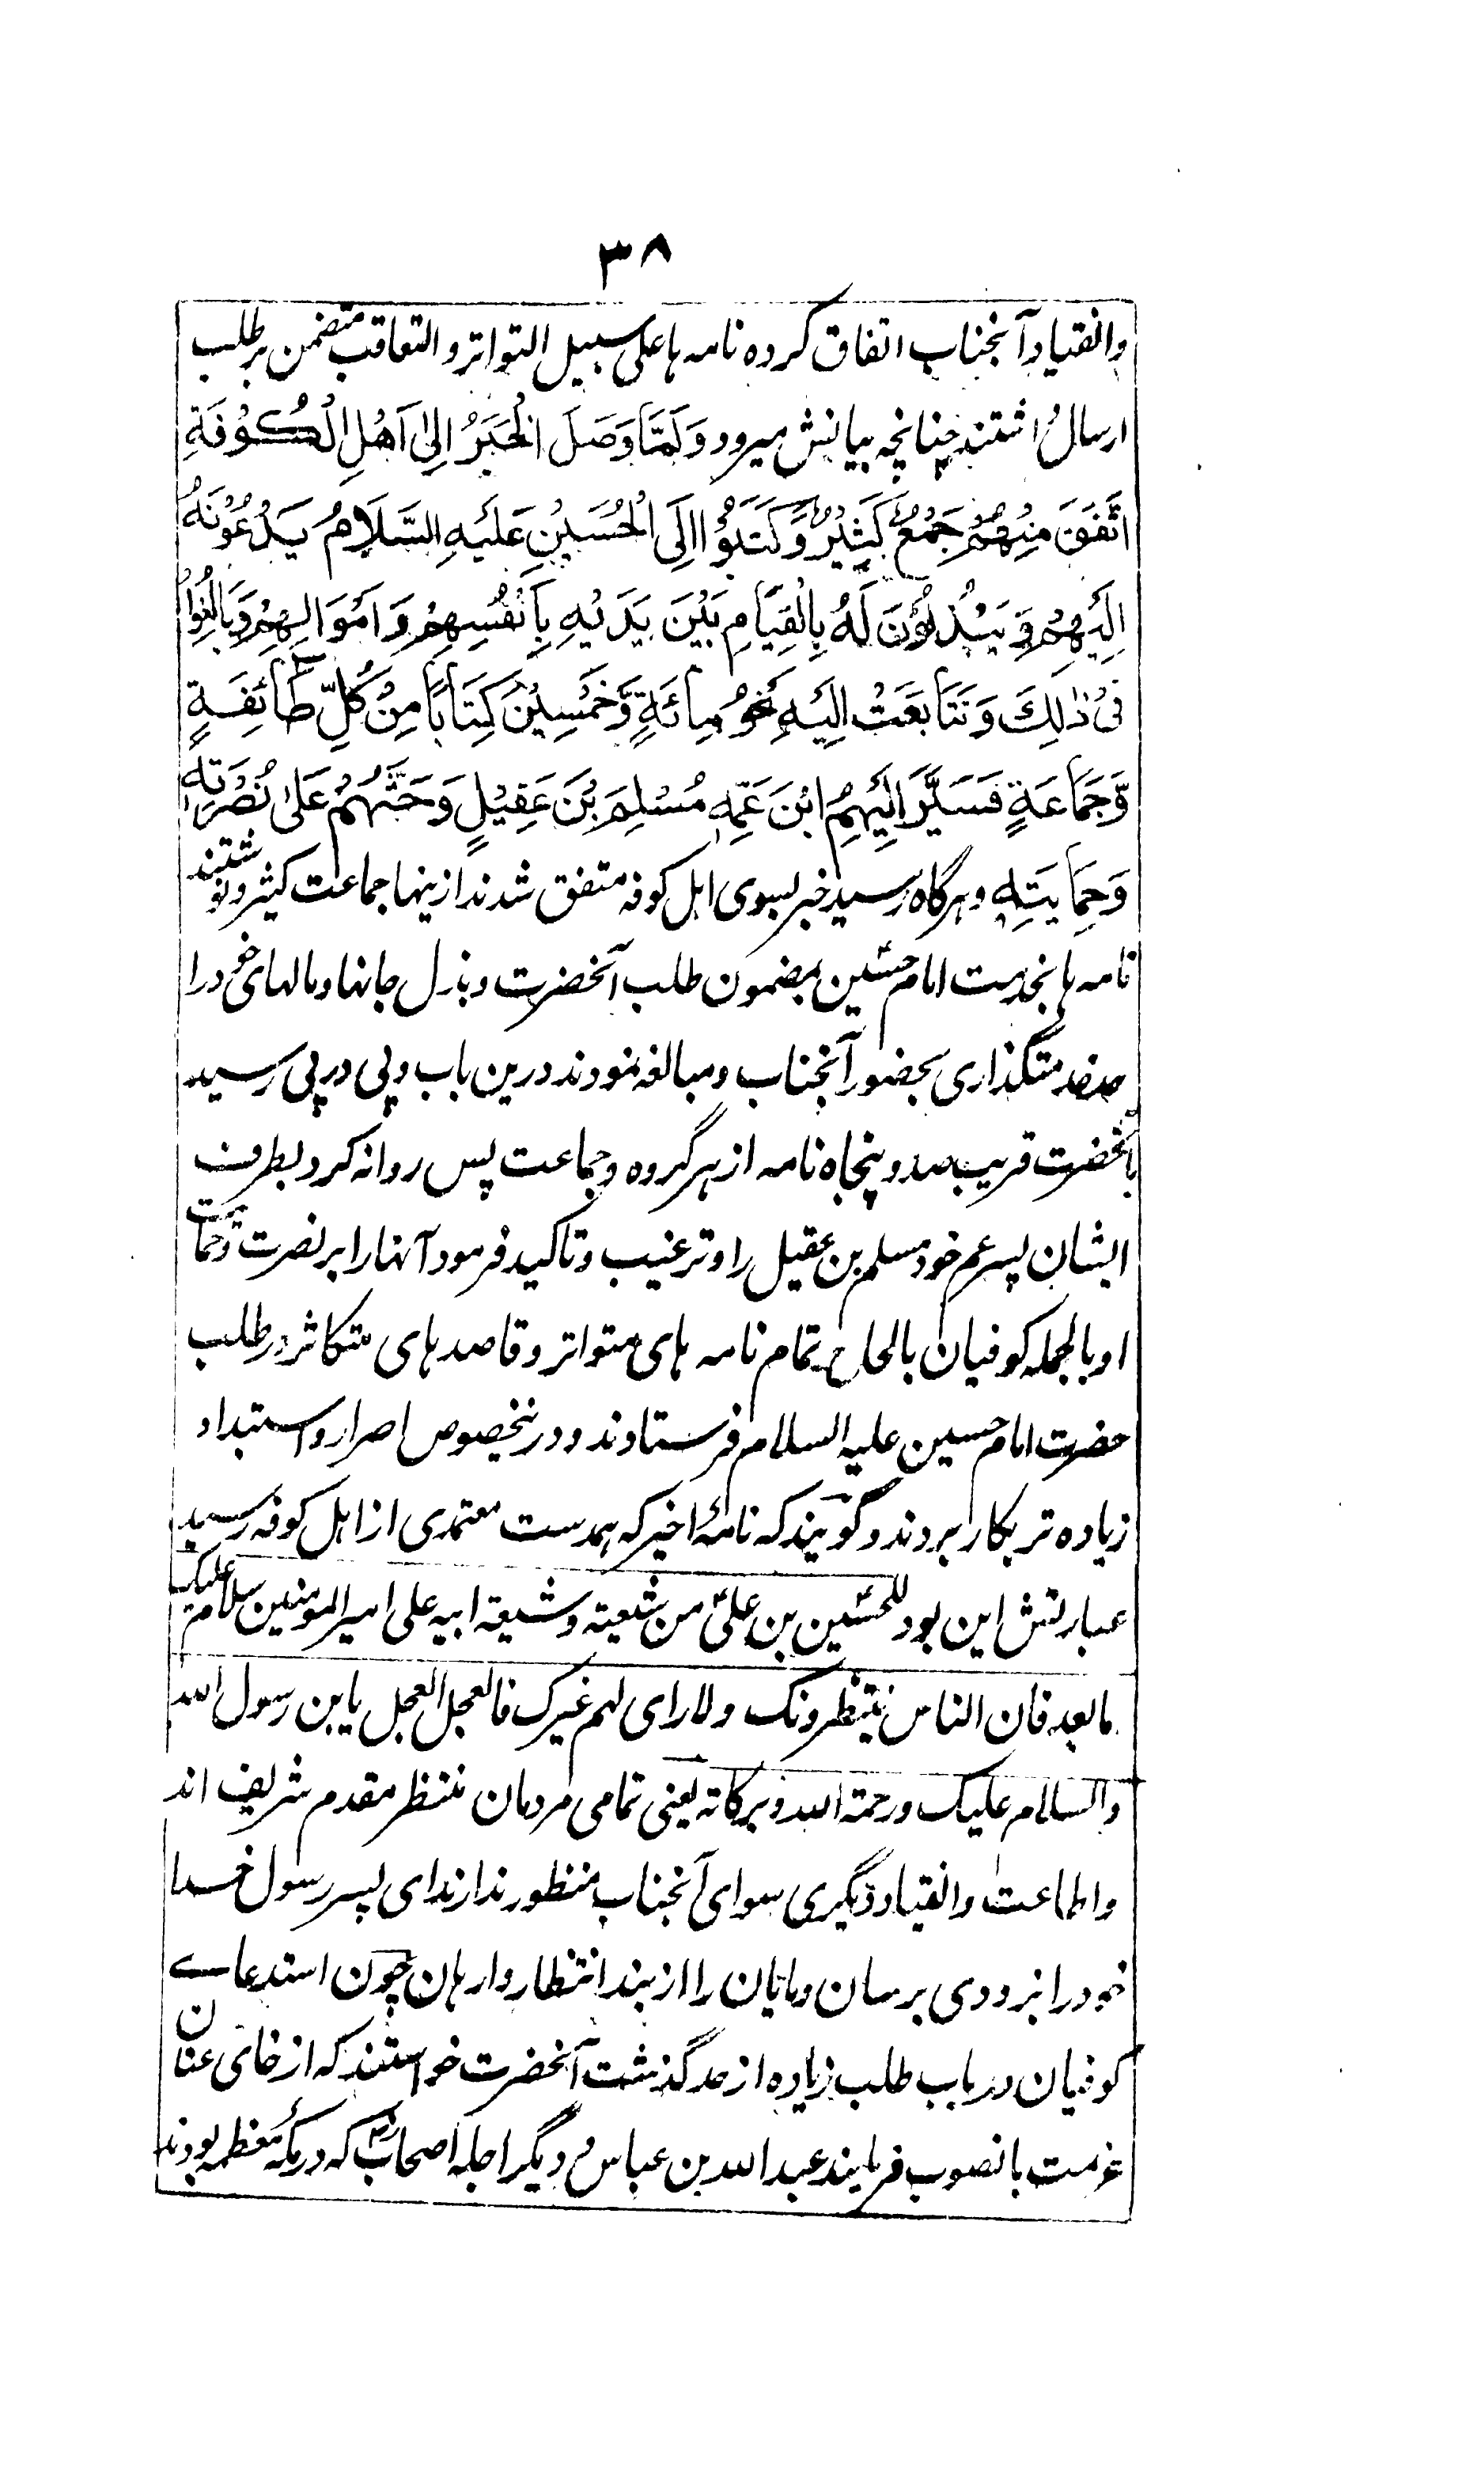 ۳۸
وانقیاد آنجناب اتفاق کرده نامه ها علی سبیل التواتر والتعاقب متضمن بر طلب
ارسال داشتند چنانچه بیانش میرود وَلَمَّا وَصَلَ الْخَبَرُ اِلیٰ اَهْلِ الْکُوْفَةِ
اتَّفَقَ مِنْهُمْ جَمْعٌ کَثِیْرٌ وَّکَتَبُوْا اِلَی الْحُسَیْنِ عَلَیْهِ السَّلَامُ یَدْعُوْنَهُ
اِلَیْهِمْ وَیَبْذُلُوْنَ لَهُ بِالْقِیَامِ بَیْنَ یَدَیْهِ بِاَنْفُسِهِمْ وَاَمْوَالِهِمْ وَبَالَغُوْا
فِیْ ذٰلِکَ وَتَتَابَعَتْ اِلَیْهِ نَحْوُ مِائَةٍ وَّخَمْسِیْنَ کِتَابًا مِنْ کُلِّ طَائِفَةٍ
وَّجَمَاعَةٍ فَسَیَّرَ اِلَیْهِمُ ابْنَ عَمِّهٖ مُسْلِمَ بْنَ عَقِیْلٍ وَحَثَّهُمْ عَلیٰ نُصْرَتِهٖ
وَحِمَایَتِهٖ وهرگاه رسید خبر بسوی اهل کوفه متفق شدند ازینها جماعت کثیر و نوشتند
نامه ها بخدمت امام حسین بمضمون طلب آنحضرت و بذل جانها و مالهای خود را
خدمتگذاری بحضور آنجناب و مبالغه نمودند درین باب و پی در پی رسید
بآنحضرت قریب صد و پنجاه نامه از هر گروه و جماعت پس روانه کرد بطرف
ایشان پسر عم خود مسلم بن عقیل را و ترغیب و تاکید فرمود آنها را بر نصرت و حمایت
او بالجمله کوفیان بالحاح تمام نامه های متواتر و قاصد های متکاثر در طلب
حضرت امام حسین علیه السلام فرستادند و درینخصوص اصرار و استبداد
زیاده تر بکار بردند و گویند که نامهٔ اخیر که همدست معتمدی از اهل کوفه رسید
عبارتش این بود للحسین بن علی من شیعته و شیعة ابیه علی امیر المومنین سلام علیک
اما بعد فان الناس ینتظرونک ولا رای لهم غیرک فالعجل العجل یا بن رسول الله
والسلام علیک ورحمة الله وبرکاته یعنی تمامی مردمان منتظر مقدم شریف اند
واطاعت وانقیاد دیگری سوای آنجناب منظور ندارند ای پسر رسول خدا
خود را بزودی برسان و مایان را از بند انتظار وارهان چون استدعای
کوفیان در باب طلب زیاده از حد گذشت آنحضرت خواستند که از خای عنان
عزمت بانصوب فرمایند عبدالله بن عباس و دیگر اجله اصحاب که در مکه معظمه بودند